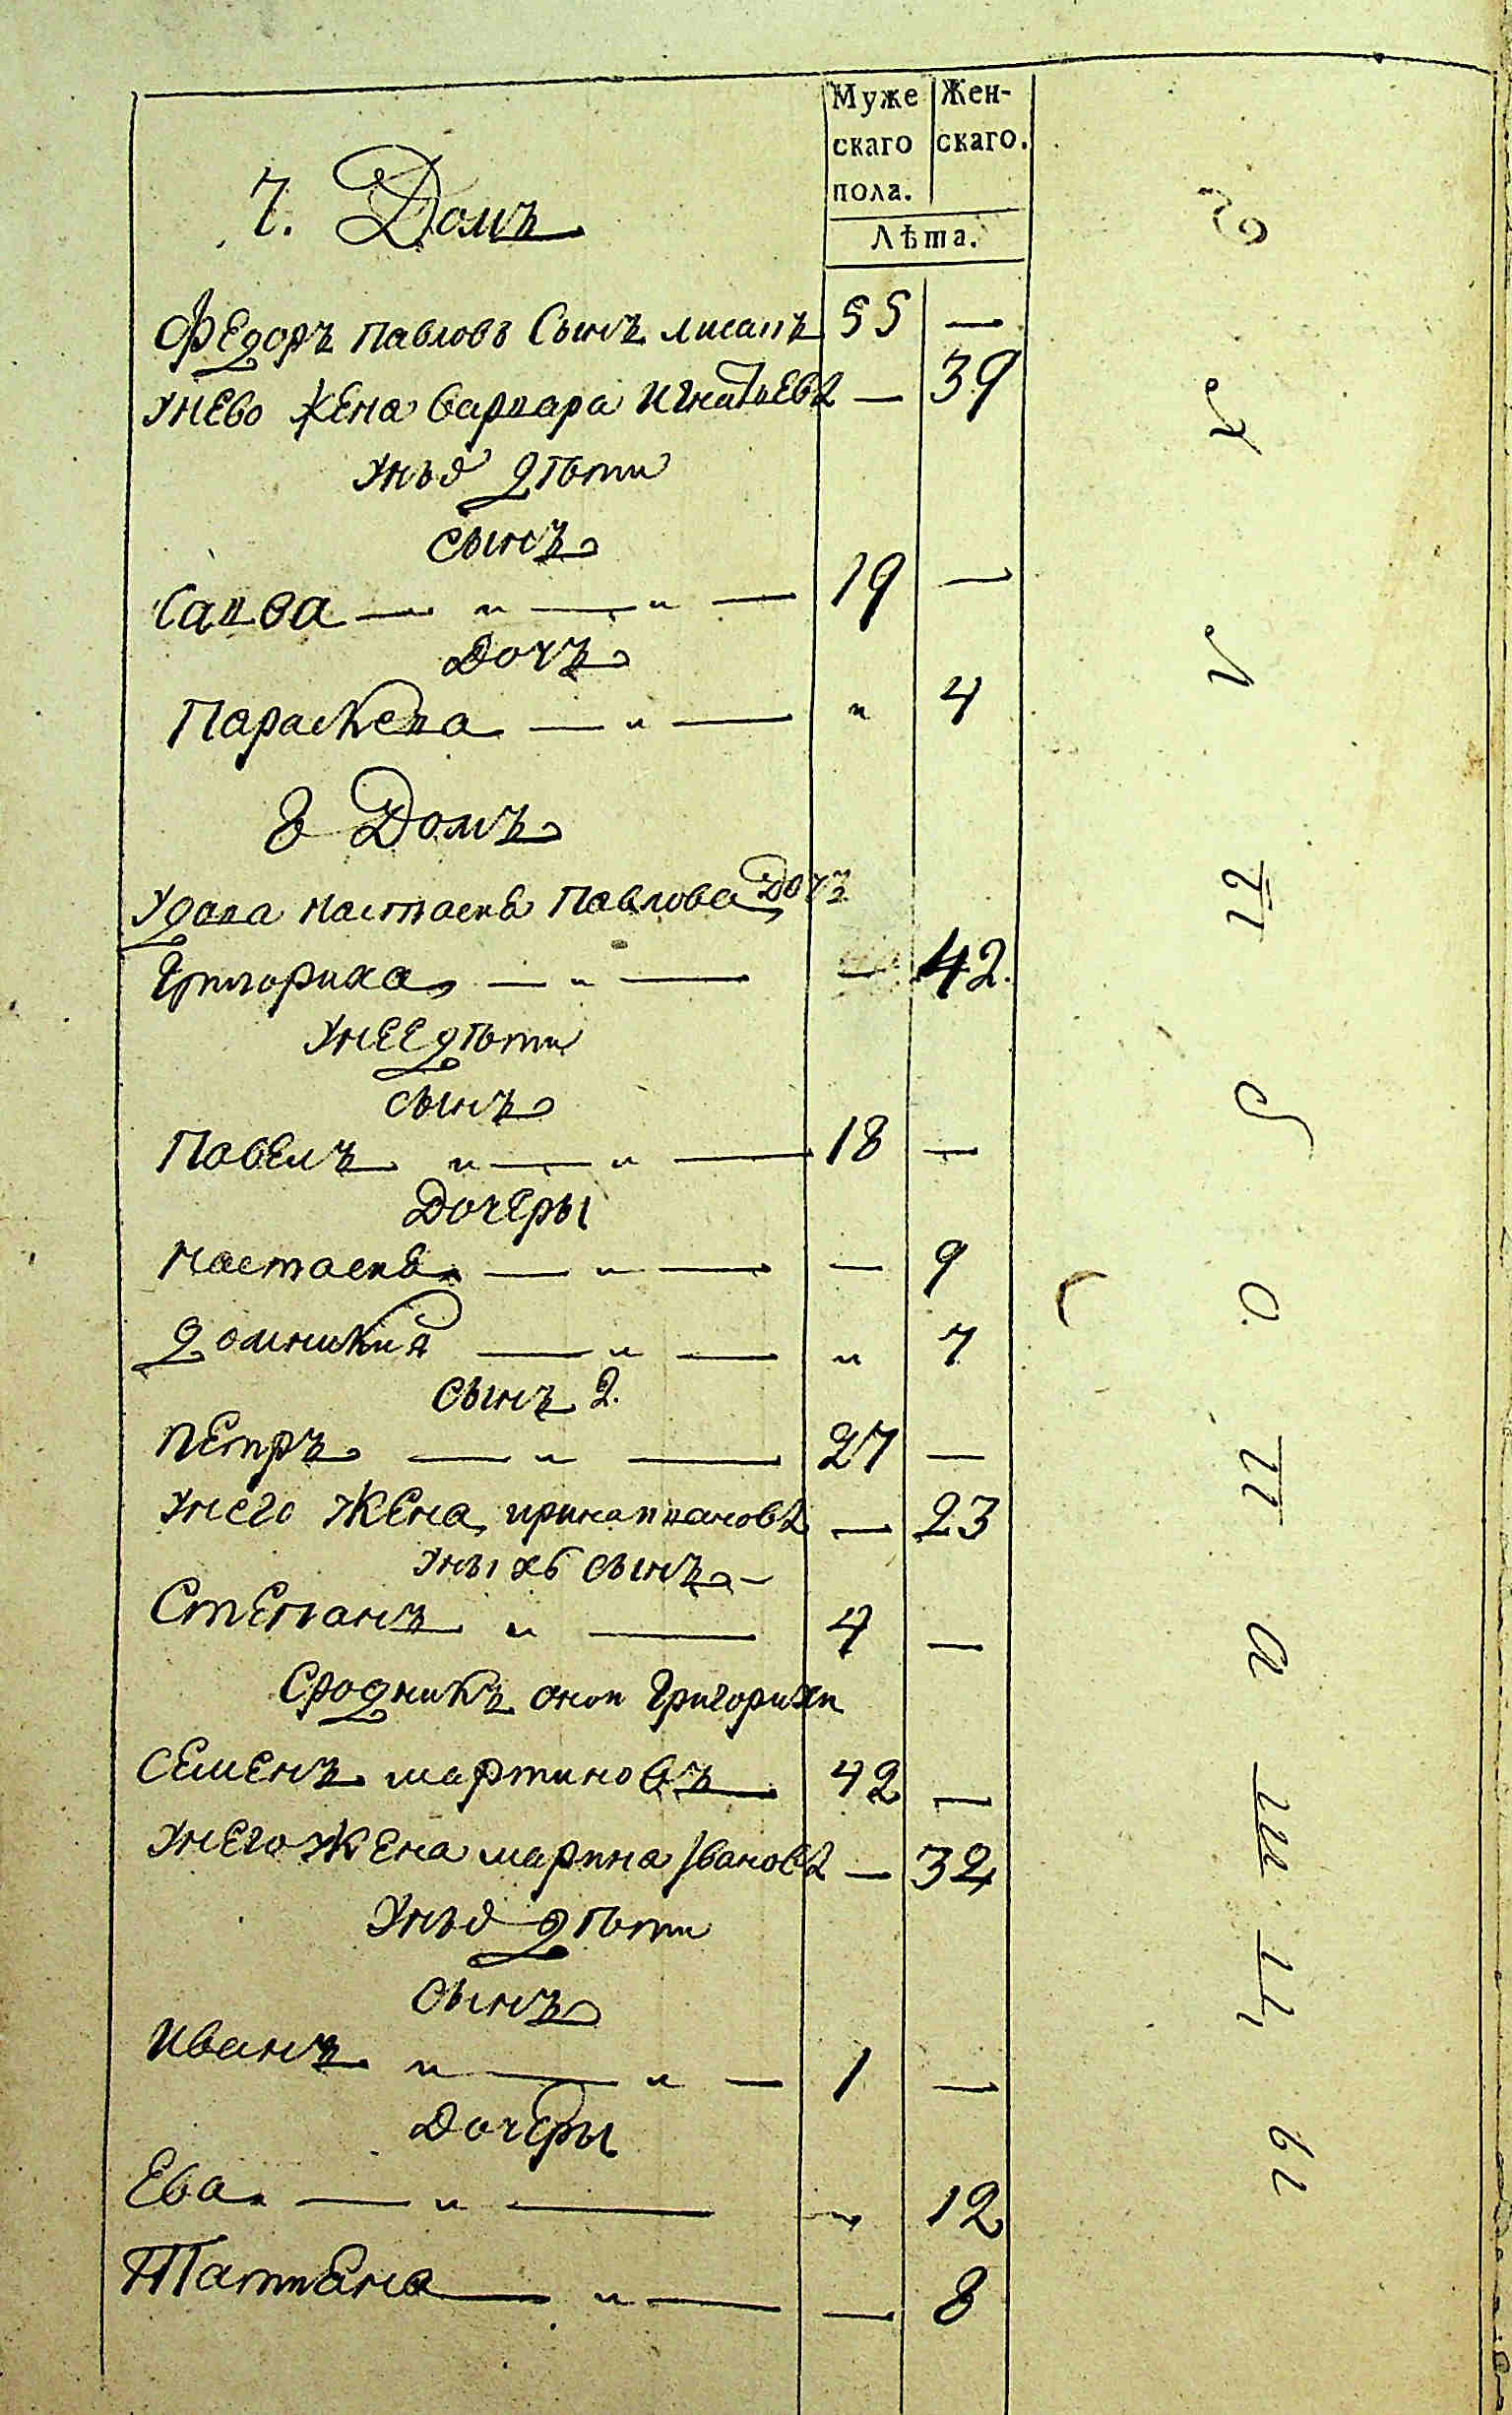 Муже
скаго
пола.
Жен-
скаго.
Лѣта.
7. Домъ
Федоръ Павловъ Сынъ лисапъ 55 —
унево жена варвара Игнатьева — 39
унья дѣти
сынъ
Савва — " — " — 19 —
Дочъ
Параскева — " — " 4
8 Домъ
удова настасея Павлова Дочъ
Григориха — " — — 42.
унее дѣти
сынъ
Павелъ " — " — 18 —
Дочеры
настасея — " — — 9
домникия — " — " 7
сынъ 2.
петръ — " — 27 —
унего жена ирина ивановa — 23
уныхъ сынъ —
Степанъ " — 4 —
Сродникъ оной Григорихи
Семенъ мартиновъ 42 —
унего жена марина Иванова — 32
унья дѣти
сынъ
Иванъ " — " — 1 —
Дочеры
Ева — " — " 12
Татиана — " — — 8
16